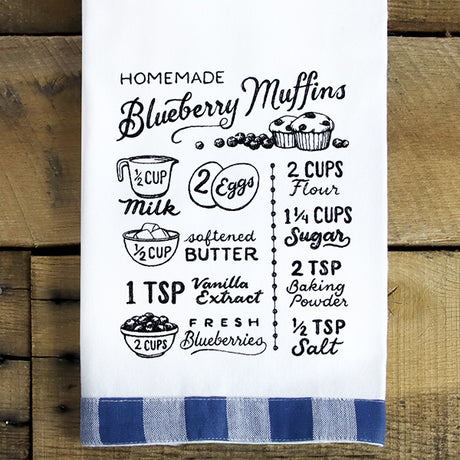 HOMEMADE
Blueberry Muffins
1/2 CUP
Milk
2 Eggs
1/2 CUP
softened
BUTTER
1 TSP
Vanilla
Extract
2 CUPS
FRESH
Blueberries
2 CUPS
Flour
1 1/4 CUPS
Sugar
2 TSP
Baking
Powder
1/2 TSP
Salt